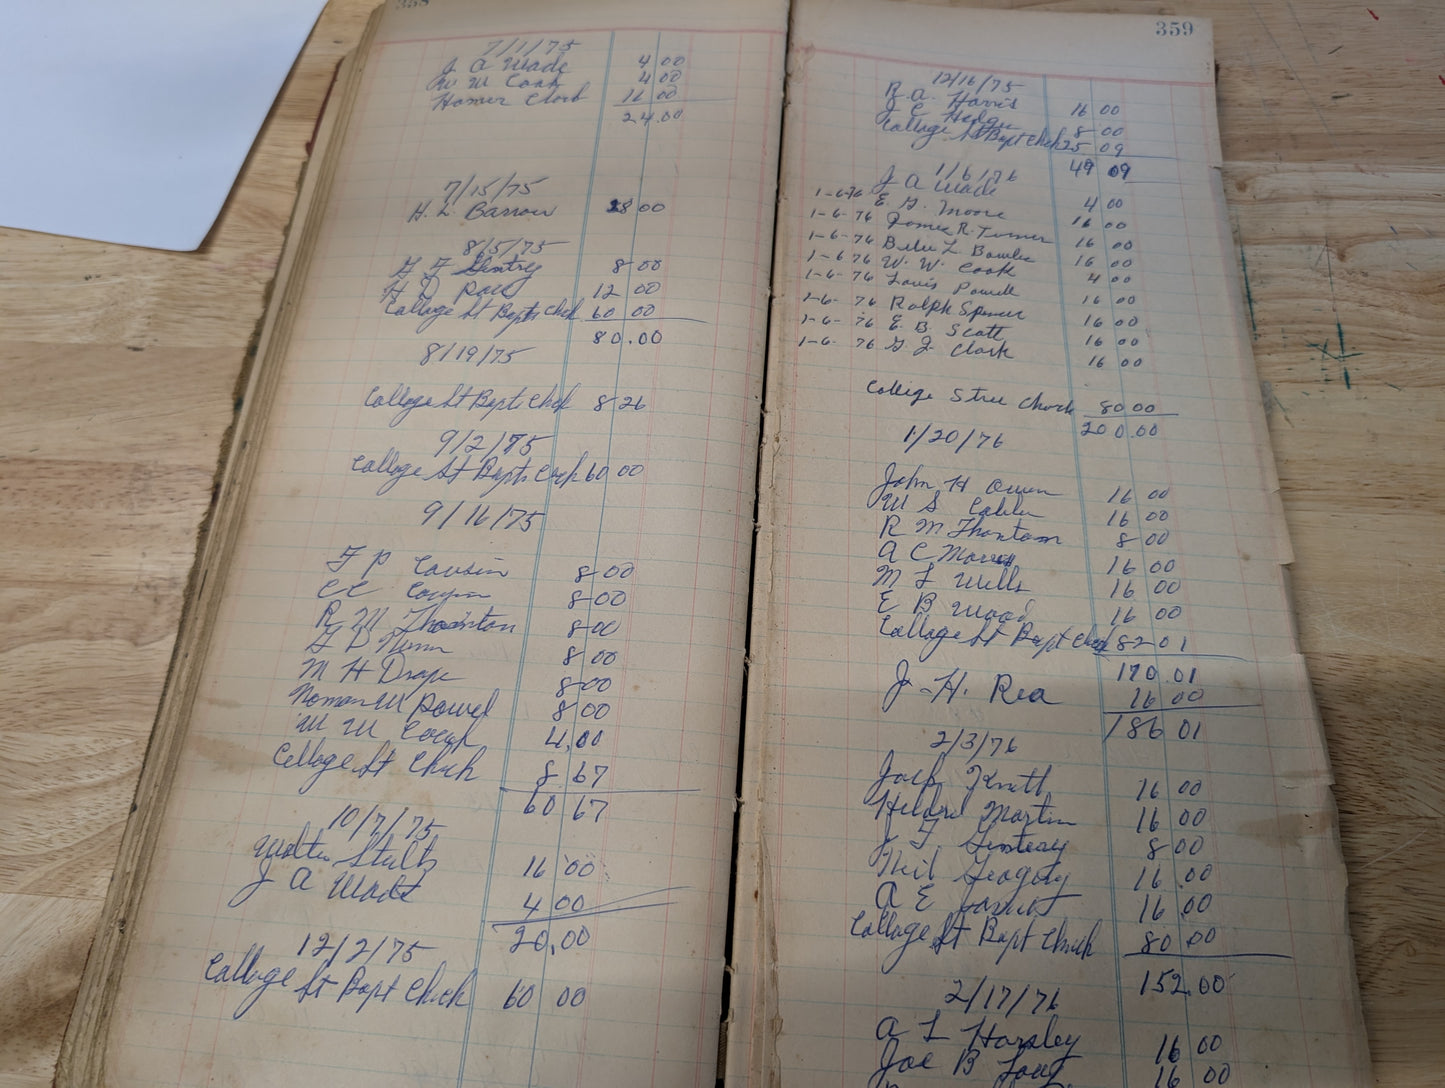 358
7/1/75
J A Wade 4 00
W W Cook 4 00
Homer Clark 16 00
24.00
7/15/75
H. L. Barrow 28 00
8/5/75
Gentry 8 00
H D 12 00
College St Bapts Chch 60 00
80.00
8/19/75
College St Bapts Chch 8 26
9/2/75
College St Bapts Chch 60 00
9/16/75
F P Cousin 8 00
C C 8 00
R M Thornton 8 00
D Nunn 8 00
M H Drape 8 00
Noman W Powel 8 00
W W 4.00
College St Chch 8 67
60 67
10/7/75
Walter Stults 16 00
J A Wade 4 00
20,00
12/2/75
College St Bapt Chch 60 00
359
12/16/75
R. A. Harris 16 00
J C 8 00
College St Bapt Chch 25 09
49 09
1/6/76
J A Wade 4 00
1-6-76 E. G. Moore 16 00
1-6-76 James R. Turner 16 00
1-6-76 L 16 00
1-6-76 W. W. Cook 4 00
1-6-76 Louis Powell 16 00
1-6-76 Ralph Spencer 16 00
1-6-76 E. B. Scott 16 00
1-6-76 G. J. Clark 16 00
College Stree Chrch 80 00
200.00
1/20/76
John H Owen 16 00
W S 16 00
R M Thontom 8 00
A C Morris 16 00
M L Wells 16 00
E B Wood 16 00
College St Bapt Chch 82 01
170.01
J-H. Rea 16 00
186 01
2/3/76
Jack Knott 16 00
Martin 16 00
J F 8 00
Neil Gregory 16 00
A E 16 00
College St Bapt Chuch 80 00
152.00
2/17/76
A L Horsley 16 00
Joe B Long 16 00